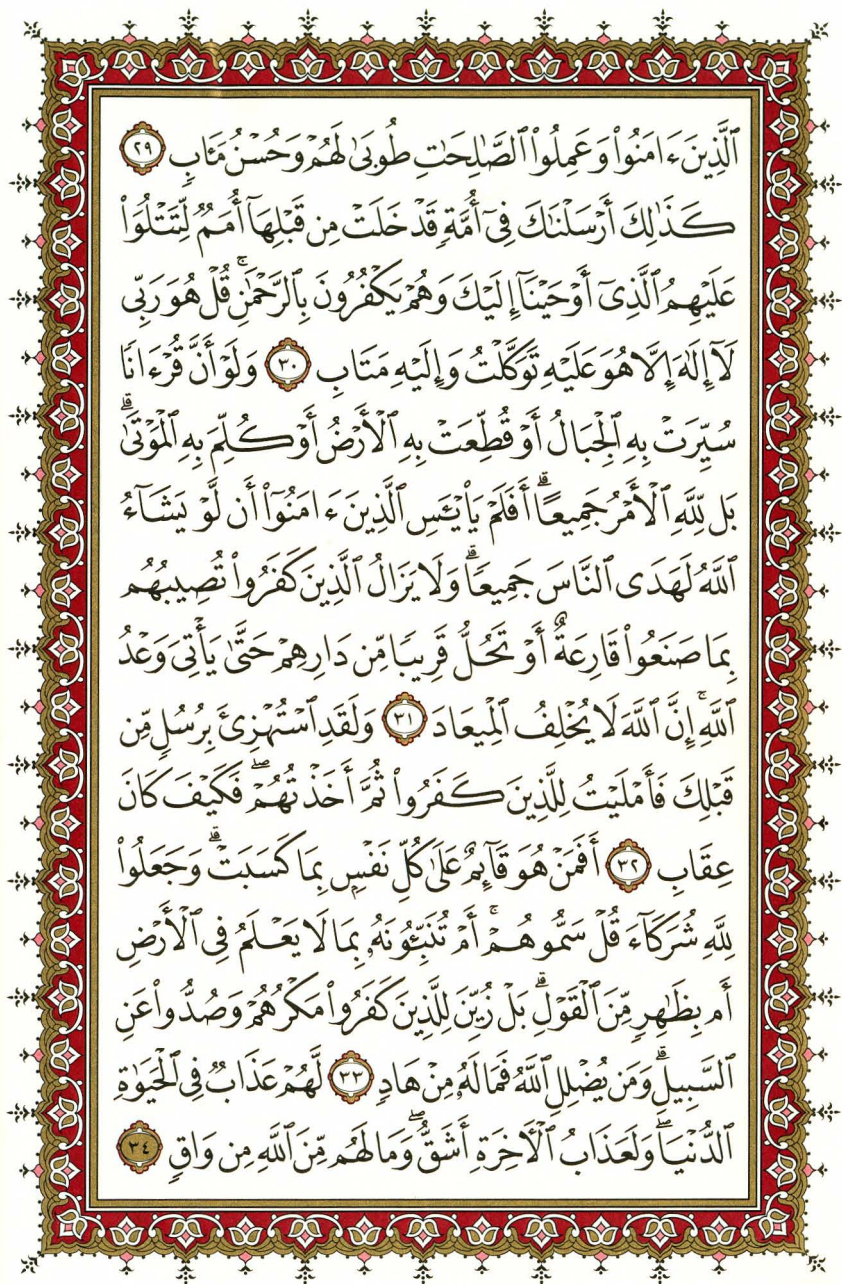 ٱلَّذِينَ ءَامَنُوا۟ وَعَمِلُوا۟ ٱلصَّٰلِحَٰتِ طُوبَىٰ لَهُمْ وَحُسْنُ مَـَٔابٍ ٢٩
كَذَٰلِكَ أَرْسَلْنَٰكَ فِىٓ أُمَّةٍ قَدْ خَلَتْ مِن قَبْلِهَآ أُمَمٌ لِّتَتْلُوَا۟
عَلَيْهِمُ ٱلَّذِىٓ أَوْحَيْنَآ إِلَيْكَ وَهُمْ يَكْفُرُونَ بِٱلرَّحْمَٰنِ ۚ قُلْ هُوَ رَبِّى
لَآ إِلَٰهَ إِلَّا هُوَ عَلَيْهِ تَوَكَّلْتُ وَإِلَيْهِ مَتَابِ ٣٠ وَلَوْ أَنَّ قُرْءَانًا
سُيِّرَتْ بِهِ ٱلْجِبَالُ أَوْ قُطِّعَتْ بِهِ ٱلْأَرْضُ أَوْ كُلِّمَ بِهِ ٱلْمَوْتَىٰ ۗ
بَل لِّلَّهِ ٱلْأَمْرُ جَمِيعًا ۗ أَفَلَمْ يَا۟يْـَٔسِ ٱلَّذِينَ ءَامَنُوٓا۟ أَن لَّوْ يَشَآءُ
ٱللَّهُ لَهَدَى ٱلنَّاسَ جَمِيعًا ۗ وَلَا يَزَالُ ٱلَّذِينَ كَفَرُوا۟ تُصِيبُهُم
بِمَا صَنَعُوا۟ قَارِعَةٌ أَوْ تَحُلُّ قَرِيبًا مِّن دَارِهِمْ حَتَّىٰ يَأْتِىَ وَعْدُ
ٱللَّهِ ۚ إِنَّ ٱللَّهَ لَا يُخْلِفُ ٱلْمِيعَادَ ٣١ وَلَقَدِ ٱسْتُهْزِئَ بِرُسُلٍ مِّن
قَبْلِكَ فَأَمْلَيْتُ لِلَّذِينَ كَفَرُوا۟ ثُمَّ أَخَذْتُهُمْ ۖ فَكَيْفَ كَانَ
عِقَابِ ٣٢ أَفَمَنْ هُوَ قَآئِمٌ عَلَىٰ كُلِّ نَفْسٍۭ بِمَا كَسَبَتْ ۗ وَجَعَلُوا۟
لِلَّهِ شُرَكَآءَ قُلْ سَمُّوهُمْ ۚ أَمْ تُنَبِّـُٔونَهُۥ بِمَا لَا يَعْلَمُ فِى ٱلْأَرْضِ
أَم بِظَٰهِرٍ مِّنَ ٱلْقَوْلِ ۗ بَلْ زُيِّنَ لِلَّذِينَ كَفَرُوا۟ مَكْرُهُمْ وَصُدُّوا۟ عَنِ
ٱلسَّبِيلِ ۗ وَمَن يُضْلِلِ ٱللَّهُ فَمَا لَهُۥ مِنْ هَادٍ ٣٣ لَّهُمْ عَذَابٌ فِى ٱلْحَيَوٰةِ
ٱلدُّنْيَا ۖ وَلَعَذَابُ ٱلْءَاخِرَةِ أَشَقُّ ۖ وَمَا لَهُم مِّنَ ٱللَّهِ مِن وَاقٍ ٣٤